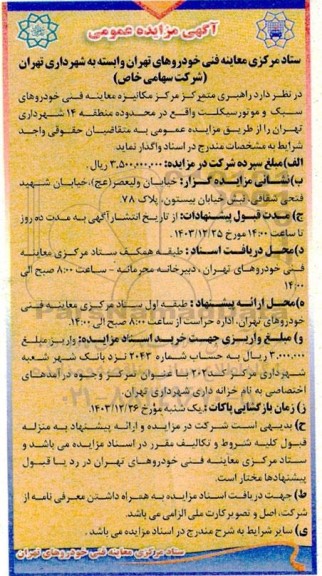 آگهی مزایده عمومی
ستاد مرکزی معاینه فنی خودروهای تهران وابسته به شهرداری تهران
(شرکت سهامی خاص)
در نظر دارد راهبری متمرکز مرکز مکانیزه معاینه فنی خودروهای
سبک و موتورسیکلت واقع در محدوده منطقه ۱۴ شهرداری
تهران را از طریق مزایده عمومی به متقاضیان حقوقی واجد
شرایط به مشخصات مندرج در اسناد واگذار نماید
الف) مبلغ سپرده شرکت در مزایده: ۳,۵۰۰,۰۰۰,۰۰۰ ریال.
ب) نشانی مزایده گزار: خیابان ولیعصر(عج)، خیابان شهید
فتحی شقاقی، نبش خیابان بیستون، پلاک ۷۸
ج) مدت قبول پیشنهادات: از تاریخ انتشار آگهی به مدت ده روز
تا ساعت ۱۴:۰۰ مورخ ۱۴۰۳/۱۲/۲۵.
د) محل دریافت اسناد: طبقه همکف ستاد مرکزی معاینه
فنی خودروهای تهران، دبیرخانه محرمانه - ساعت ۸:۰۰ صبح الی
۱۴:۰۰
ه) محل ارائه پیشنهاد: طبقه اول ستاد مرکزی معاینه فنی
خودروهای تهران، اداره حراست از ساعت ۸:۰۰ صبح الی ۱۴:۰۰.
و) مبلغ واریزی جهت خرید اسناد مزایده: واریز مبلغ
۳,۰۰۰,۰۰۰ ریال به حساب شماره ۲۰۴۳ نزد بانک شهر شعبه
شهرداری مرکزی کد ۲۰۰۲ با عنوان تمرکز وجوه درآمدهای
اختصاصی به نام خزانه داری شهرداری تهران
ز) زمان بازگشایی پاکات: یک شنبه مورخ ۱۴۰۳/۱۲/۲۶
ح) بدیهی است شرکت در مزایده و ارائه پیشنهاد به منزله
قبول کلیه شروط و تکالیف مقرر در اسناد مزایده می باشد و
ستاد مرکزی معاینه فنی خودروهای تهران در رد یا قبول
پیشنهادها مختار است.
ط) جهت دریافت اسناد مزایده به همراه داشتن معرفی نامه از
شرکت، اصل و تصویر کارت ملی الزامی می باشد.
ی) سایر شرایط به شرح مندرج در اسناد مزایده می باشد.
ستاد مرکزی معاینه فنی خودروهای تهران